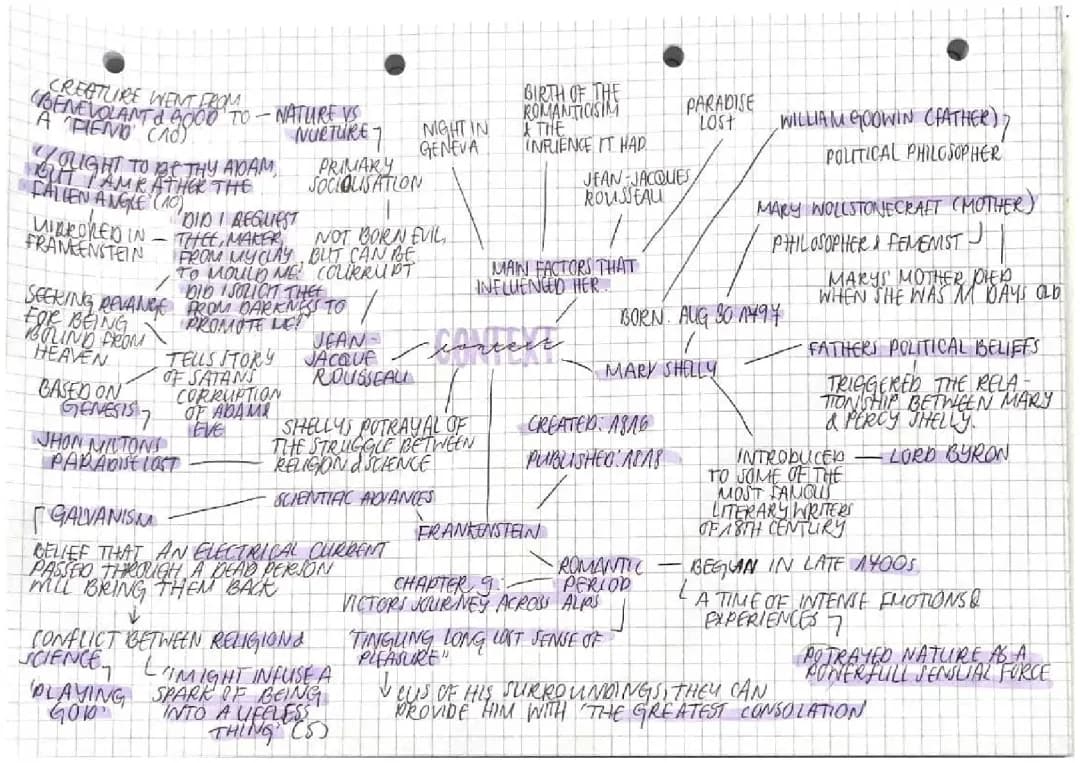 CREATURE WENT FROM
"BENEVOLANT & GOOD" TO
A "FIEND" (10)
NATURE VS
NURTURE
"I OUGHT TO BE THY ADAM,
BUT I AM RATHER THE
FALLEN ANGLE" (10)
PRIMARY
SOCIALISATION
MIRRORED IN
FRANKENSTEIN
DID I REQUEST
THEE, MAKER,
FROM MY CLAY
TO MOULD ME?
DID I SOLICIT THEE
FROM DARKNESS TO
PROMOTE ME?
NOT BORN EVIL,
BUT CAN BE
COURRUPT
SEEKING REVANGE
FOR BEING
FROM
HEAVEN
JEAN-
JACQUE
ROUSSEAU
TELLS STORY
OF SATANS
CORRUPTION
OF ADAM &
EVE
BASED ON
GENESIS
JHON MILTONS
PARADISE LOST
SHELLYS POTRAYAL OF
THE STRUGGLE BETWEEN
RELIGION & SCIENCE
NIGHT IN
GENEVA
BIRTH OF THE
ROMANTICISIM
& THE
INFLUENCE IT HAD
JEAN-JACQUES
ROUSSEAU
PARADISE
LOST
MAIN FACTORS THAT
INFLUENCED HER.
CONTEXT
context
WILLIAM GODWIN (FATHER)
POLITICAL PHILOSOPHER
MARY WOLLSTONECRAFT (MOTHER)
PHILOSOPHER & FEMENIST
MARYS' MOTHER DIED
WHEN SHE WAS 11 DAYS OLD
BORN: AUG 30 1797
MARY SHELLY
FATHERS POLITICAL BELIEFS
TRIGGERED THE RELA-
TIONSHIP BETWEEN MARY
& PERCY SHELLY.
INTRODUCED
TO SOME OF THE
MOST FAMOUS
LITERARY WRITERS
OF 18TH CENTURY
LORD BYRON
CREATED: 1816
PUBLISHED: 1818
SCIENTIFIC ADVANCES
GALVANISM
FRANKENSTEIN
BELIEF THAT AN ELECTRICAL CURRENT
PASSED THROUGH A DEAD PERSON
WILL BRING THEM BACK
CONFLICT BETWEEN RELIGION &
SCIENCE
'PLAYING
GOD'
"I MIGHT INFUSE A
SPARK OF BEING
INTO A LIFELESS
THING" (5)
ROMANTIC
PERIOD
BEGUN IN LATE 1400s
A TIME OF INTENSE EMOTIONS &
EXPERIENCES
POTRAYED NATURE AS A
POWERFULL SENSUAL FORCE
CHAPTER 9:
VICTORS JOURNEY ACROSS ALPS
"TINGLING LONG LOST SENSE OF
PLEASURE"
CUS OF HIS SURROUNDINGS, THEY CAN
PROVIDE HIM WITH 'THE GREATEST CONSOLATION